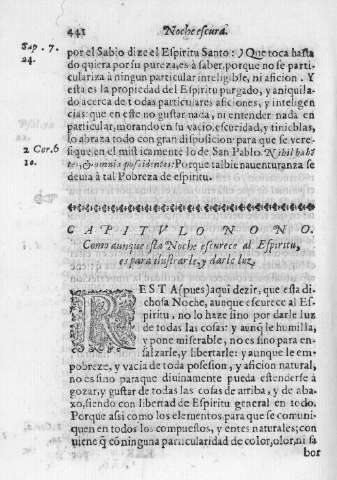 441 Noche escura.
Sap. 7.
24.
por el Sabio dize el Espiritu Santo:) Que toca hasta
do quiera por su pureza, es à saber, porque no se parti-
culariza à ningun particular inteligible, ni aficion. Y
esta es la propiedad del Espiritu purgado, y aniquila-
do acerca de todas particulares aficiones, y inteligen
cias: que en este no gustar nada, ni entender nada en
particular, morando en su vacio, escuridad, y tinieblas,
lo abraza todo con gran disposicion: para que se vere-
2 Cor. 6
10.
fique en el misticamente lo de San Pablo. Nihil habẽ
tes, & omnia possidentes: Porque tal bienauenturanza se
deuia à tal Pobreza de espiritu.
CAPITVLO NONO.
Como aunque esta Noche escurece al Espiritu,
es para ilustrarle, y darle luz.
RESTA (pues) aqui dezir, que esta di-
chosa Noche, aunque escurece al Es-
piritu, no lo haze sino por darle luz
de todas las cosas: y aunq̃ le humilla,
y pone miserable, no es sino para en-
salzarle, y libertarle: y aunque le em-
pobreze, y vacia de toda posesion, y aficion natural,
no es sino paraque diuinamente pueda estenderse à
gozar, y gustar de todas las cosas de arriba, y de aba-
xo, siendo con libertad de Espiritu general en todo.
Porque asi como los elementos para que se comuni-
quen en todos los compuestos, y entes naturales; con
uiene q̃ cõ ninguna particularidad de color, olor, ni sa
bor